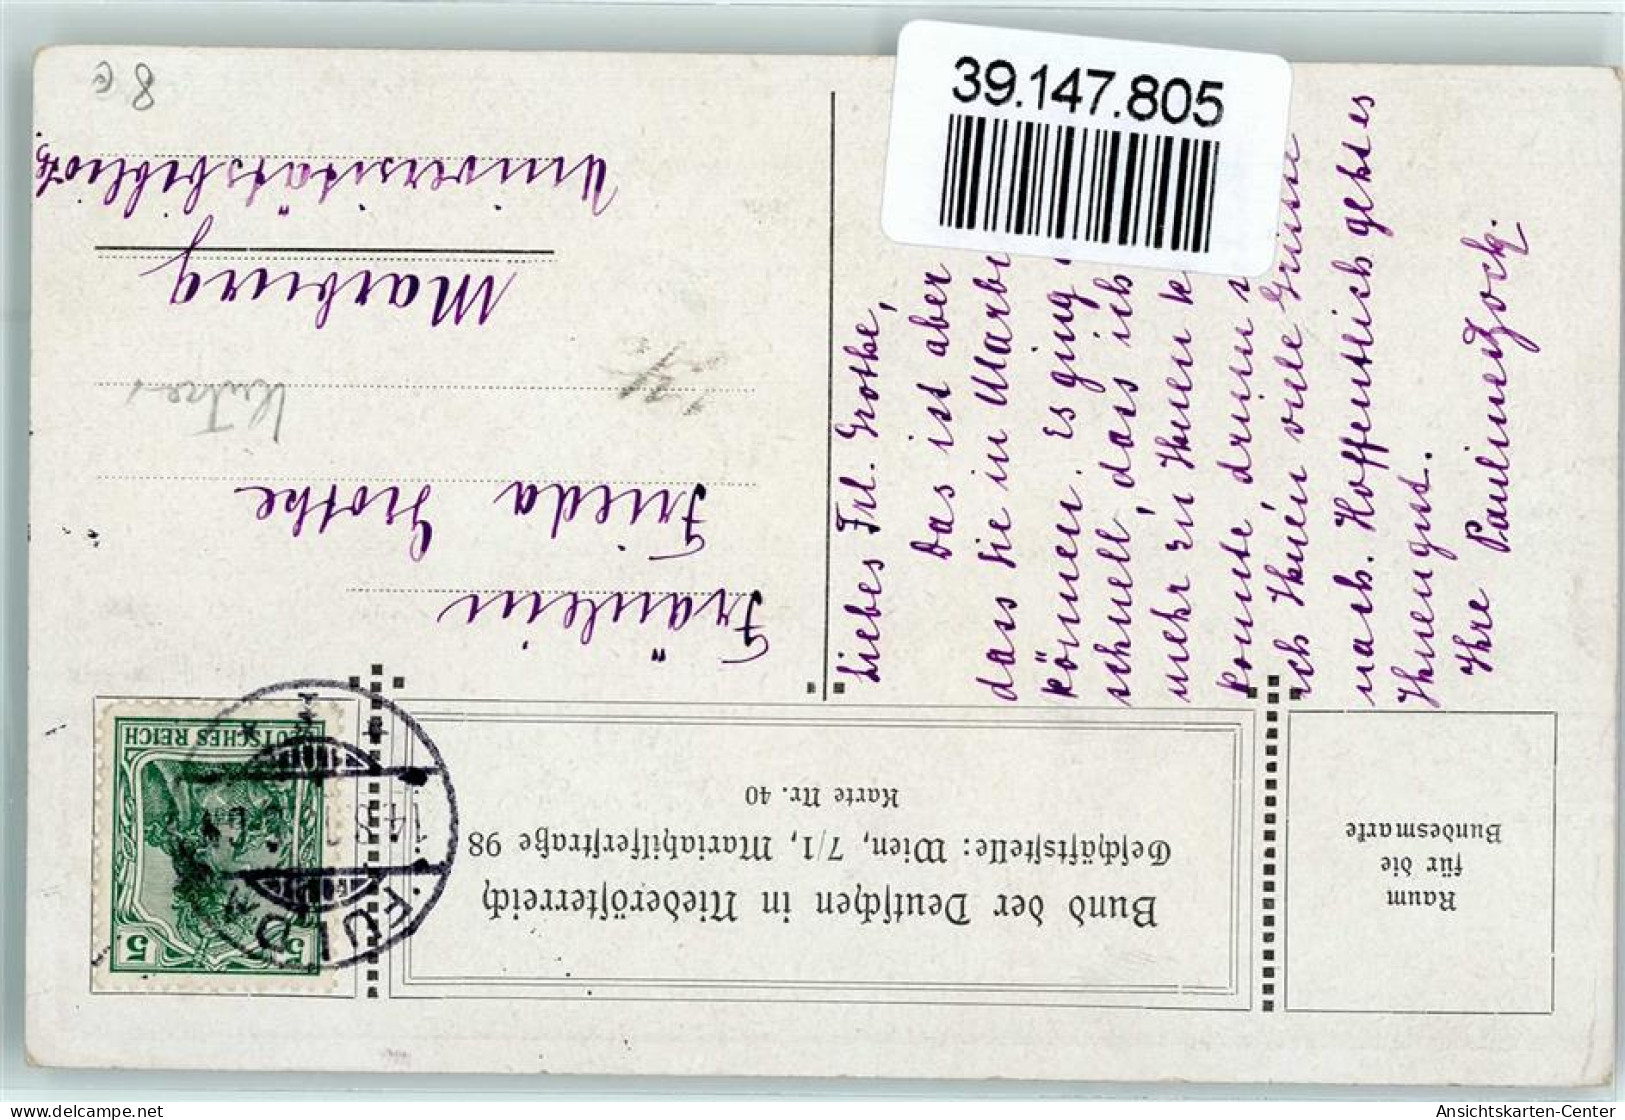 39.147.805
Bund der Deutschen in Niederösterreich
Geschäftsstelle: Wien, 7/1, Mariahilferstraße 98
Karte Nr. 40
Raum
für die
Bundesmarke
DEUTSCHES REICH
5 5
FULDA
Fräulein
Frieda Grothe
Marburg
Universitätsbiblioth
Liebes Frl. Grothe,
Das ist aber
dass Sie in Marbu
können. Es ging
schnell, dass ich
mehr zu Ihnen k
konnte drum s
ich Ihnen viele Grüsse
nach. Hoffentlich geht es
Ihnen gut.
Ihre Pauline Hock.
8
Ansichtskarten-Center
delcampe.net